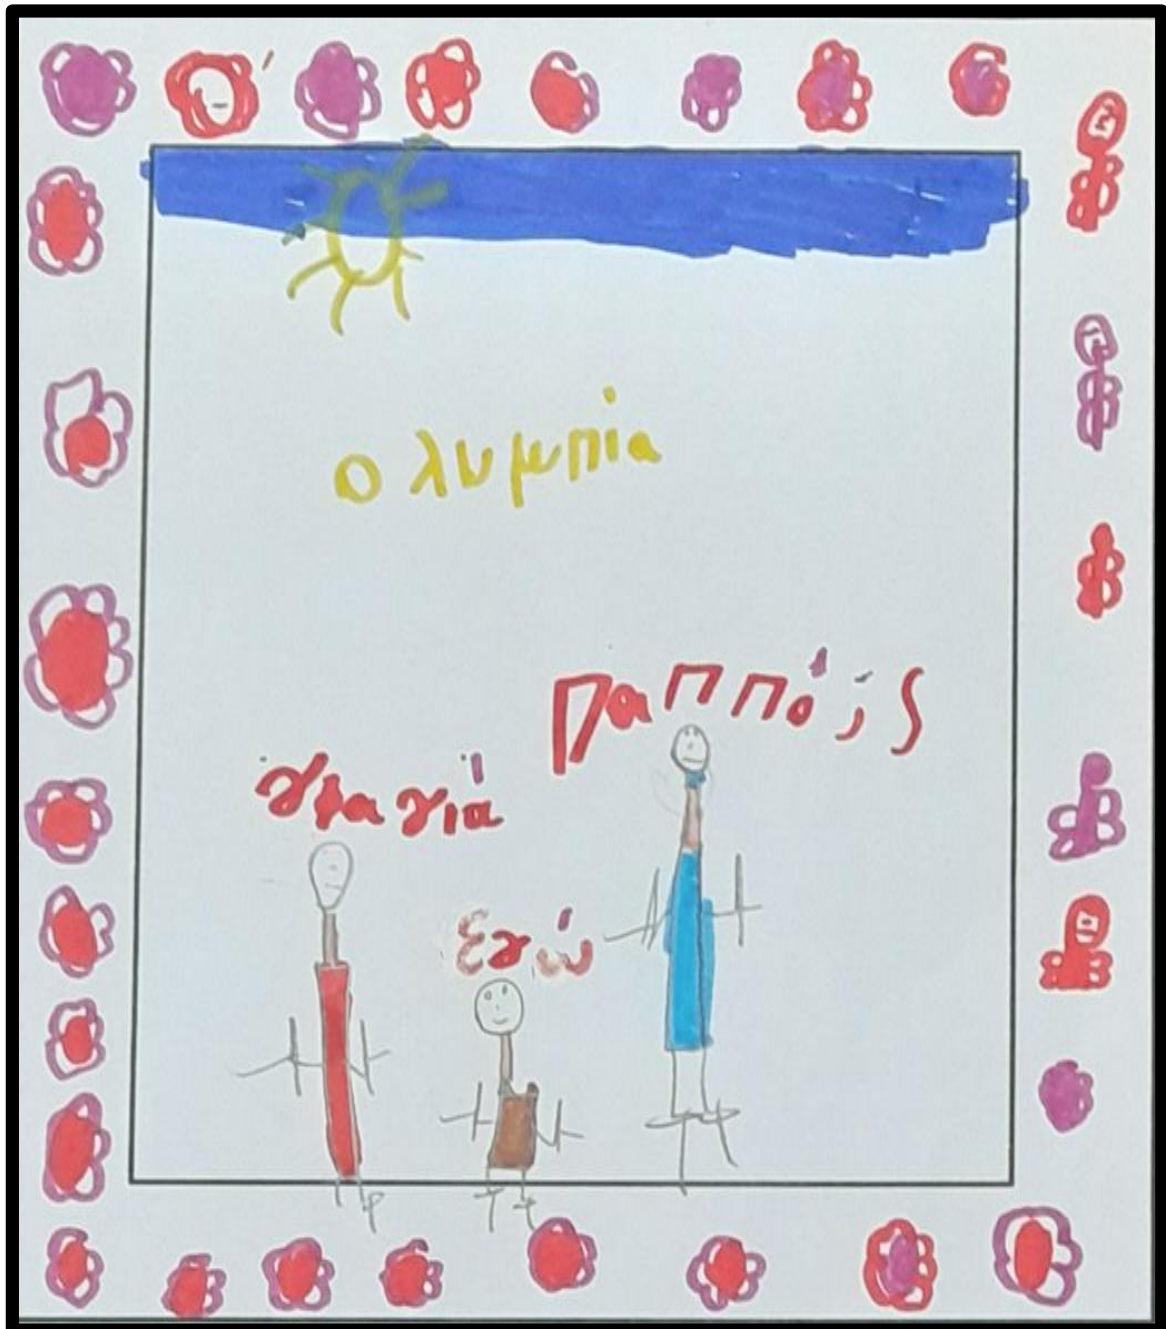 ολυμπία
Παππό;ς
γιαγιά
Εγώ